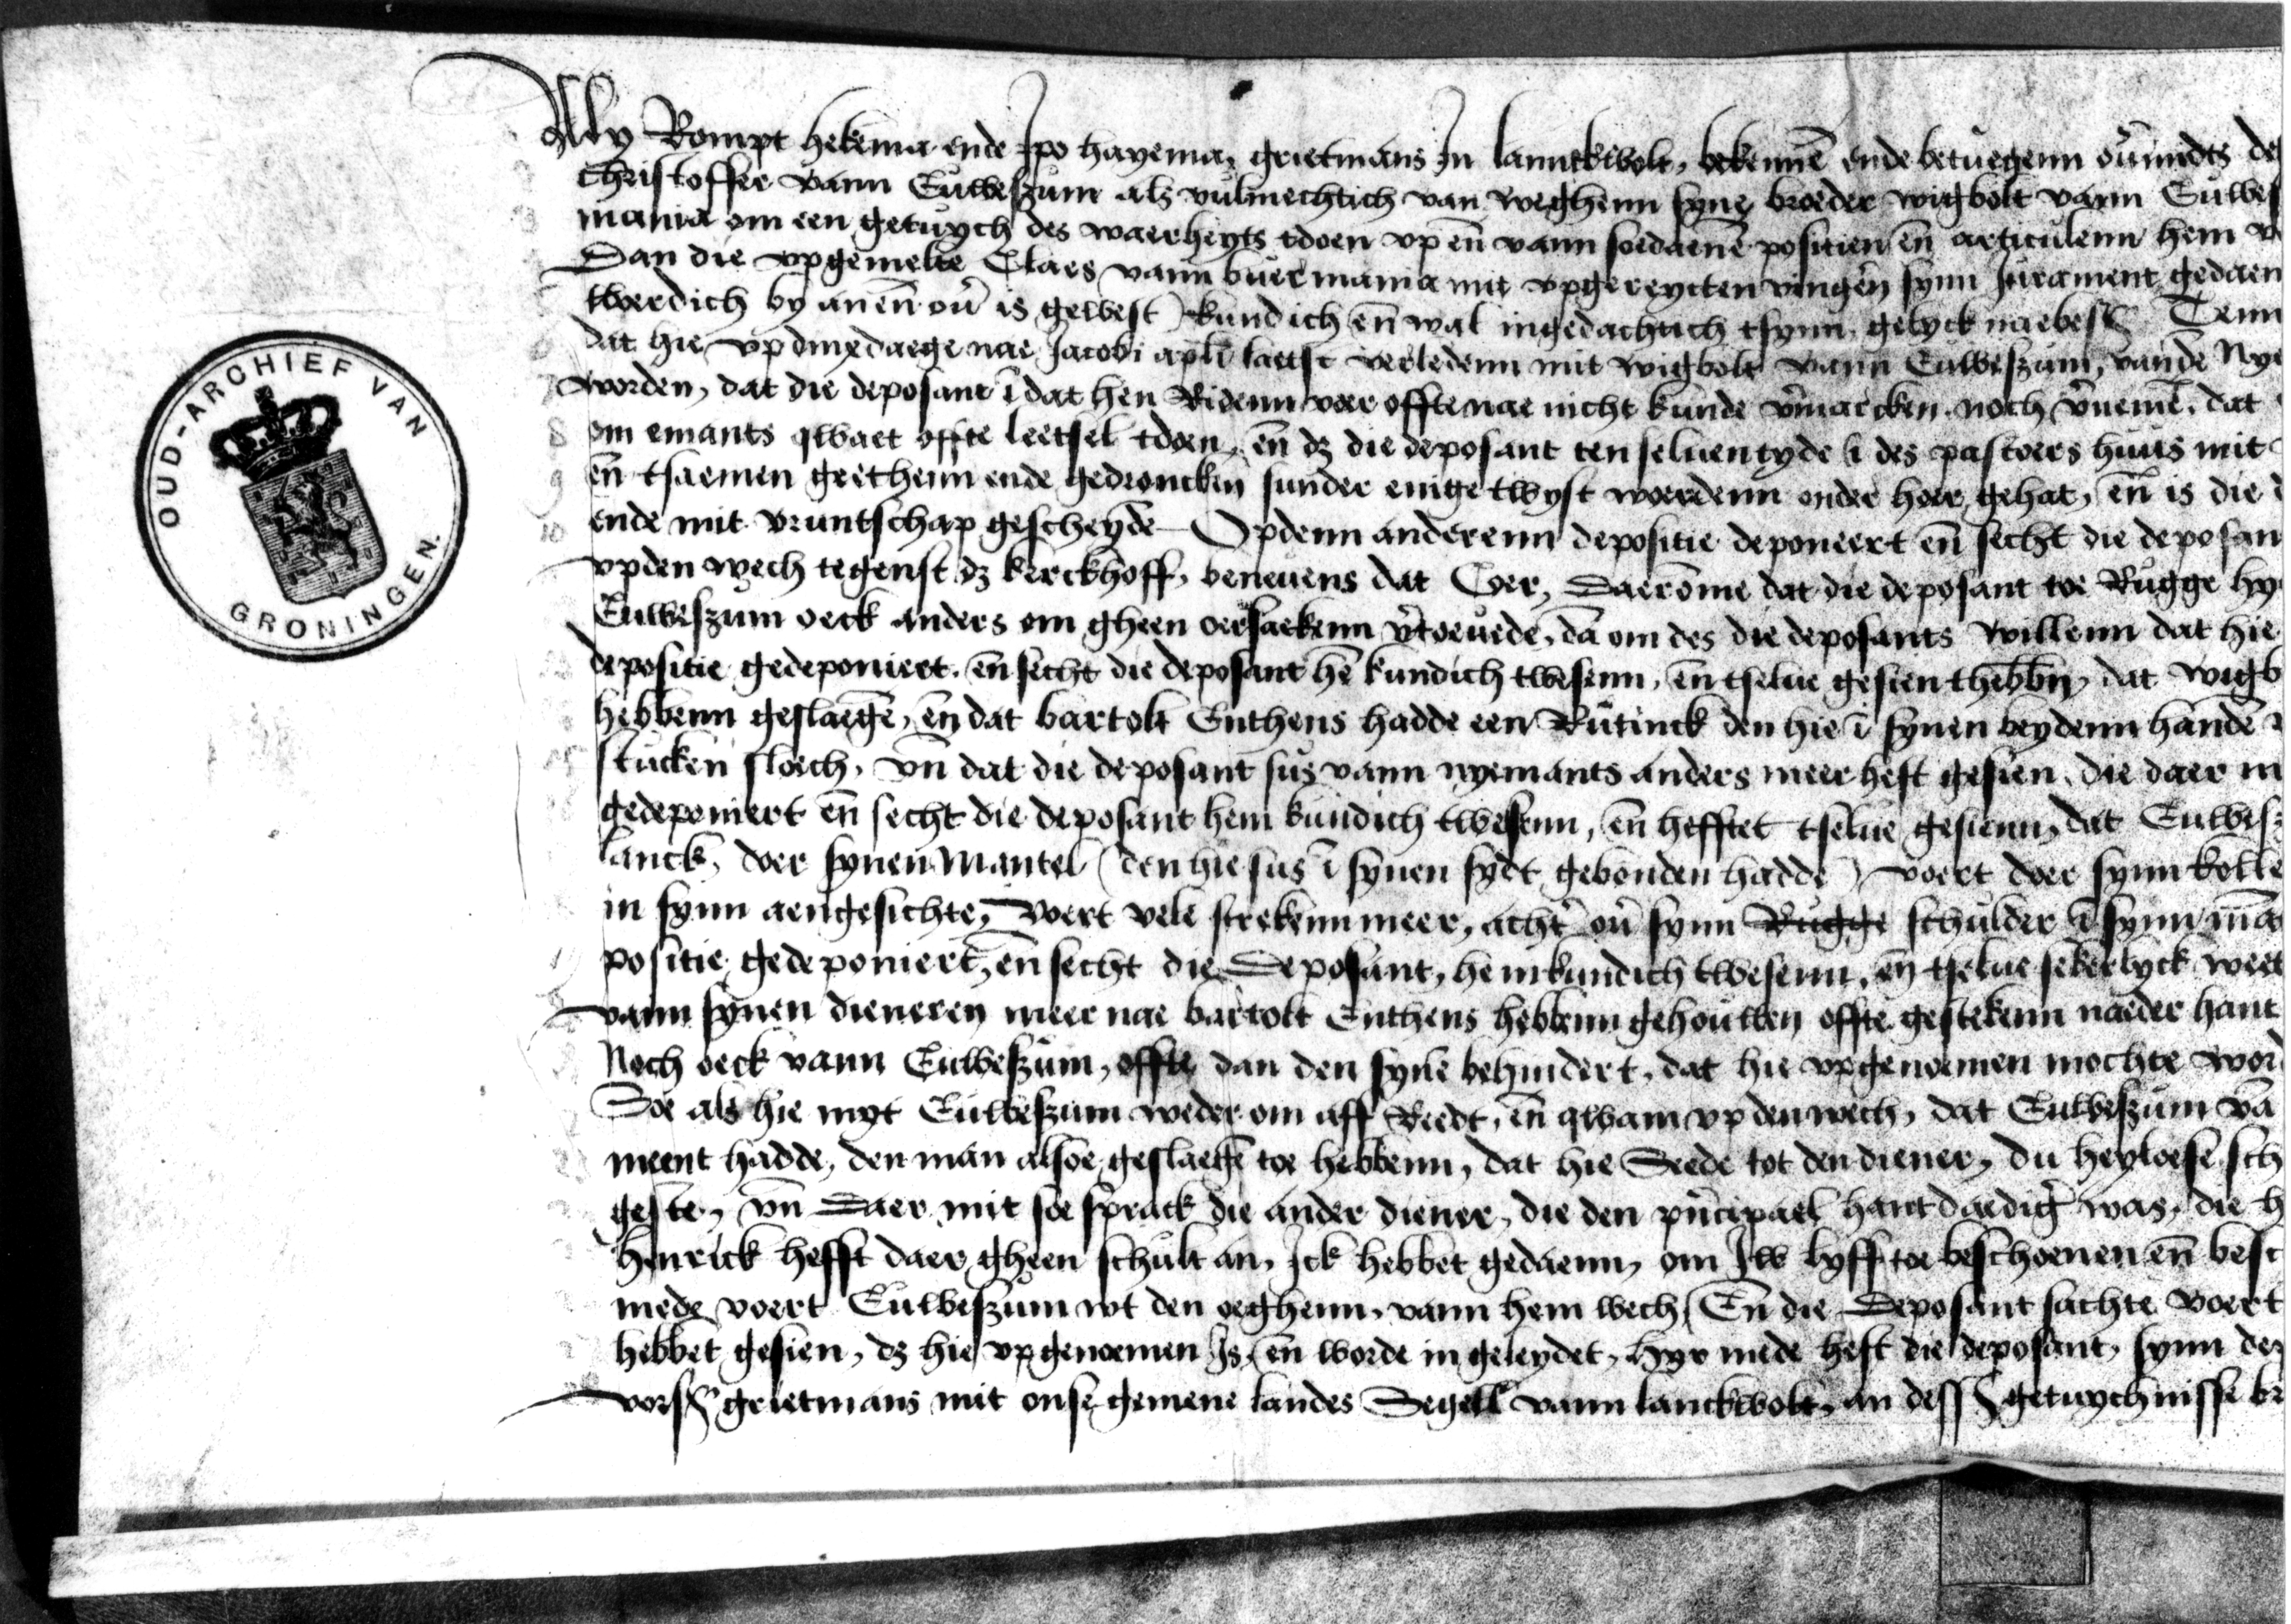 OUD-ARCHIEF VAN
GRONINGEN.
Wy Rompt hekema ende Ipo hayema, grietmans In lanuckwolt, bekennē ende betuegenn ou'midts de
Christoffer vann Euwesßum als vulmechtich van weghenn syne broeder wigbolt vann Euwes
mania om een getuych des waerheyts tdoen vp en̄ vann soedaene positien en̄ articulenn hem v
Dan die vpgemelte Claes vann buermania mit vpgereycten vinger̄n synn Jurament gedaen
twerdich by an en̄ ou' is gewest kundich en̄ wal ingedachtich tsynn gelyck naebes Tenn
dat hie vp dinxedaege nae Jacobi apl̄i laetst verledenn mit wigbolt vann Euwesßum, vandē Nye
worden, dat die deposant ī dat hen Ridenn voer offte nae nicht kunde v'marcken noch v'nemē, dat
om emants qwaet offte leetsel tdoen, en̄ dz die deposant ten seluen tyde ī des pastoers huus mit
en̄ tsaemen geethenn ende gedronckn̄ sunder enige twyst woerdenn onder hoer gehat, en̄ is die
10 ende mit vruntschap gescheydē Opdenn anderenn depositie deponeert en̄ secht die deposan
vpden wech tegenst dz kerckhoff, beneuens dat Coer, Daerōme dat die deposant toe Rugge hy
Euwesßum oeck anders om gheen oersaekenn v'toeuede, dā om des die deposants willenn dat hie
depositie gedeponiert, en̄ secht die deposant hē kundich twesenn, en̄ tselue gesien thebbn̄, dat wigb
hebbenn geslaegē, en̄ dat bartolt Enthens hadde een Rutinck den hie ī synen beydenn handē
stucken sloech, vn̄ dat die deposant sus vann nyemants anders meer heft gesien, die daer m
gedeponiert en̄ secht die deposant hem kundich twesenn, en̄ hefftet tselue gesienn, dat Euwesß
lanck, doer synen Mantel (den hie sus ī synen sydt gebonden hadde) voert doer synn kolle
in synn aengesichte, voert vele strekenn meer, acht' ou' synn Rugge schulder ī synn mā
positie gedeponiert, en̄ secht die Deposant, hem kundich twesenn, en̄ tselue sekerlyck weet
vann synen dieneren meer nae bartolt Enthens hebbenn gehouwen offte gestekenn naeder hant
Noch oeck vann Euwesßum, offte dan den synē behindert, dat hie vpgenoemen mochte word
Soe als hie myt Euwesßum weder om aff Reedt, en̄ qwam vp den wech, dat Euwesßum vā
ment hadde, den man alsoe geslaegē toe hebbenn, dat hie Seede tot den diener, du heyloese sch
geste, vn̄ Daer mit soe sprack die ander diener, die den pn̄cipael hantdaedig' was, die h
Hinrick hefft daer gheen schult an, Ick hebbet gedaenn, om Iw lyff toe beschoenen en̄ besc
mede voert Euwesßum wt den oeghenn, vann hem wech, En̄ die Deposant sachte voert
hebbet gesien, dz hie vpgenoemen Is, en̄ worde in geleydet, hyr mede heft die deposant, synn de
vors grietmans mit onse gemene landes Segell vann lanckwolt, an dess getuychnisse br